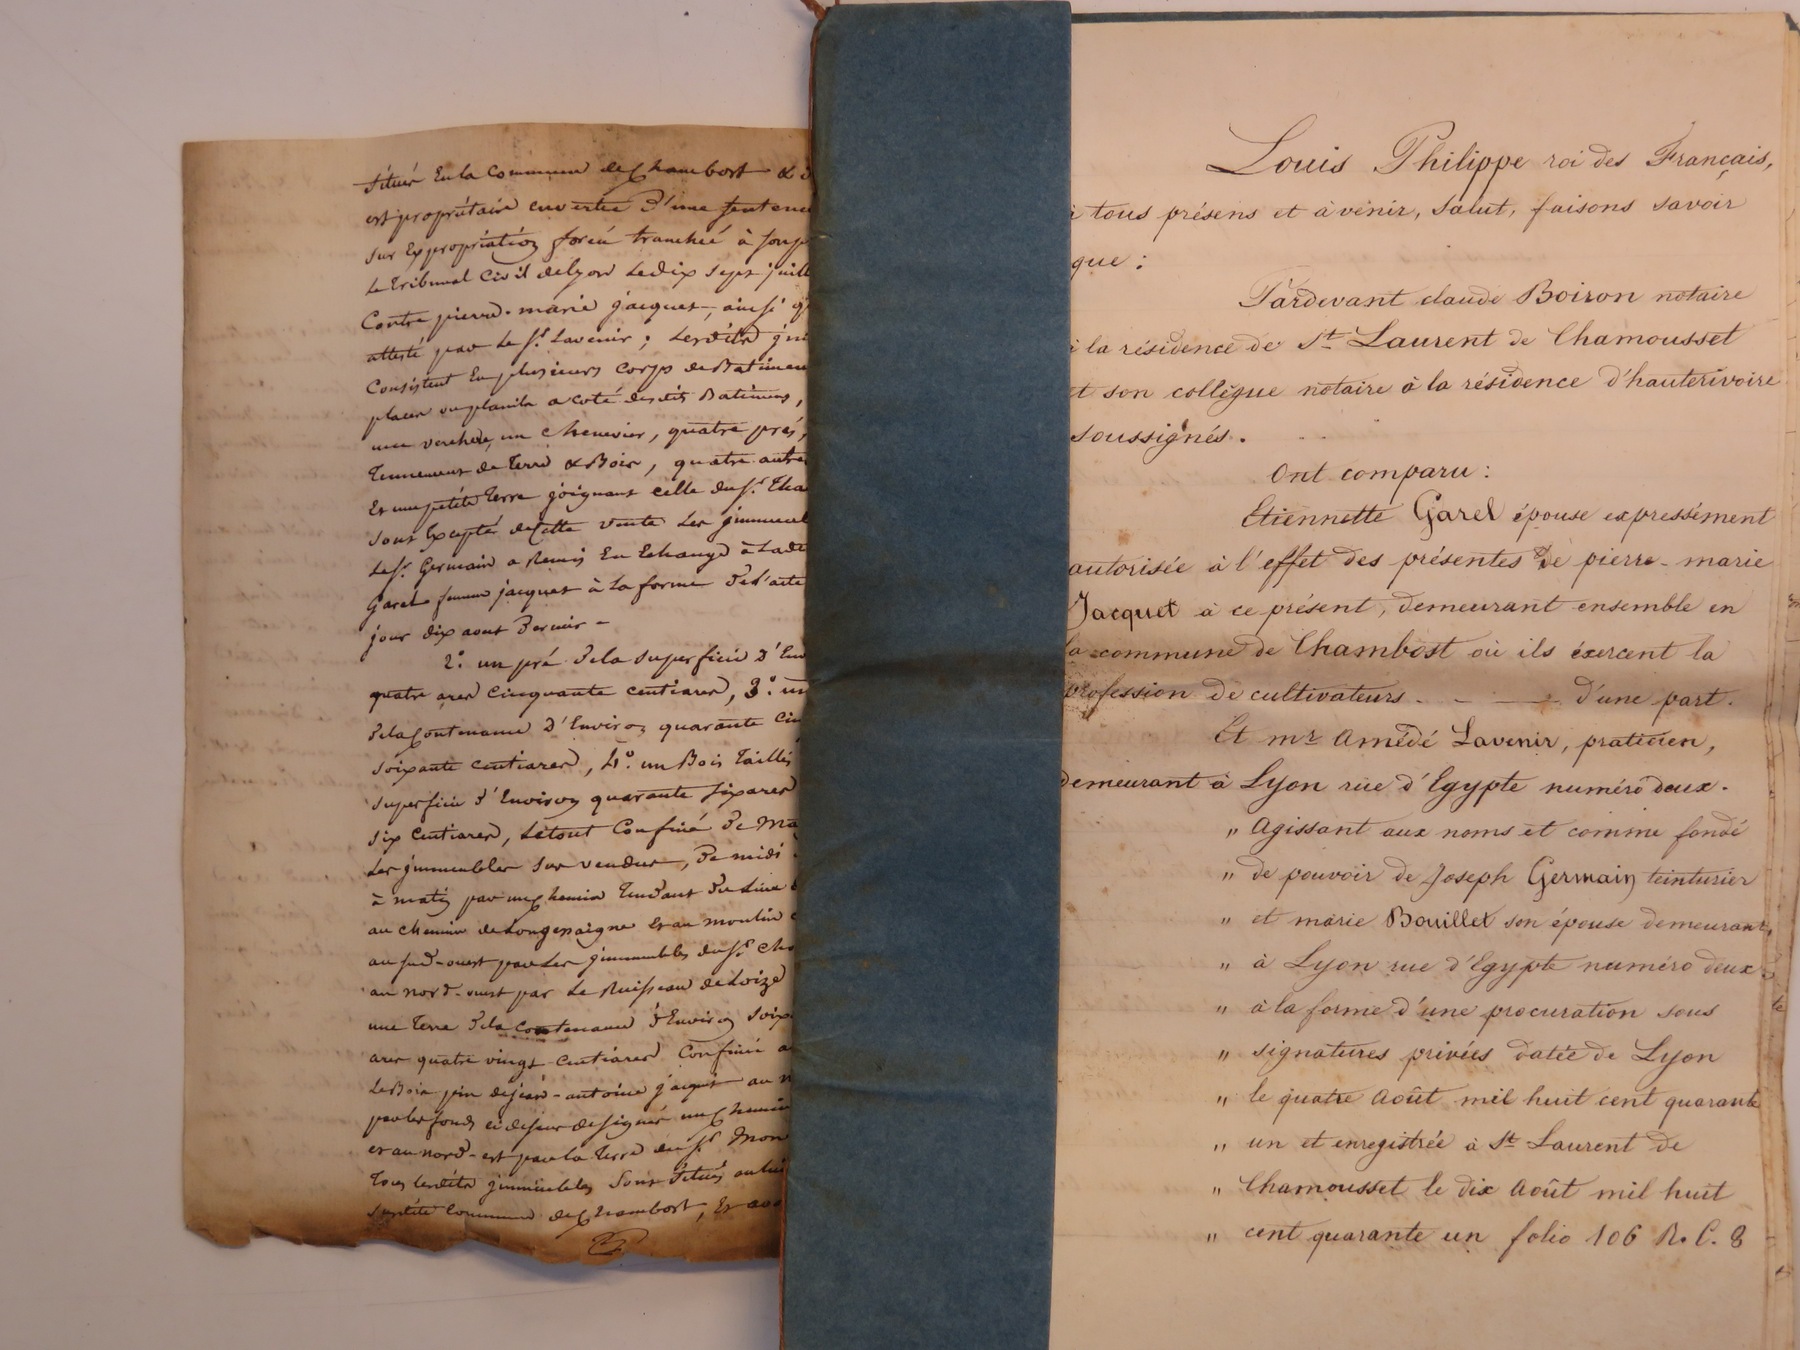 situés En la Commune de Chambost &
est propriétaire en vertu d'une sentence
sur Expropriation forcée tranchée à
Le tribunal Civil de lyon Le dix sept juill
Contre pierre-marie jacquet, ainsi
attesté par Le Sr. Lavenir; Lesdits
Consistent En plusieurs corps de Batimens
places ou plantés a coté desdits Batimens,
une verchere, un chenevier, quatre prés,
Tennement de Terre & Bois, quatre autre
Et une petite terre joignant celle du Sr. Tha
sont Excepté de Cette vente Les immeubl
Le Sr. Germain a Remis En Echange à Ladi
Garel femme jacquet à la forme de l'acte
jour dix aout dernier -
2.° un pré de la superficie d'Env
quatre ares cinquante centiares, 3.° un
de la Contenance d'Environ quarante
soixante centiares, 4.° un Bois Taillis
superficie d'Environ quarante six ares
six centiares, Le tout Confiné de Ma
Les immeubles sus vendus, de midi
à matin par un Chemin Tendant du Lieu
au chemin de Longessaigne Et au moulin
au sud-ouest par Les immeubles du Sr. Cha
au nord-ouest par Le Ruisseau de Loize
une Terre de la contenance d'Environ soix
ares quatre vingt Centiares Confiné a
Le Bois pin de jean-antoine jacquet au n
par les fonds ci dessus designés un Chemin
et au nord-est par la Terre du Sr. Mon
Tous lesdits immeubles sont situés au lieu
susdite Commune de Chambost, Et
Louis Philippe roi des Français,
à tous présens et à venir, Salut, faisons savoir
que :
Pardevant claude Boiron notaire
à la résidence de St Laurent de Chamousset
et son collègue notaire à la résidence d'hauterivoire
soussignés.
Ont comparu :
Etiennette Garel épouse expressément
autorisée à l'effet des présentes de pierre-marie
Jacquet à ce présent, demeurant ensemble en
la commune de Chambost où ils éxercent la
profession de cultivateurs. - — d'une part.
Et mr Amédé Lavenir, praticien,
demeurant à Lyon rue d'Egypte numéro deux.
" Agissant aux noms et comme fondé
" de pouvoir de Joseph Germain teinturier
" et marie Bouillet son épouse demeurant,
" à Lyon rue d'Egypte numéro deux
" à la forme d'une procuration sous
" signatures privées datée de Lyon
" le quatre Août mil huit cent quarante
" un et enregistrée à St Laurent de
" Chamousset le dix Août mil huit
" cent quarante un folio 106 R. C. 8